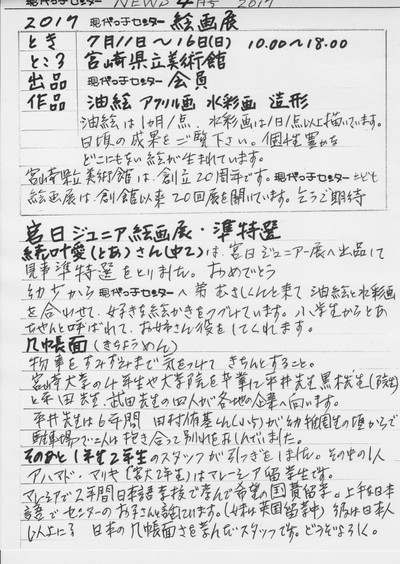 現代っ子センター NEWS 4月号 2017
2017 現代っ子センター 絵画展
とき 7月11日〜16日(日) 10.00〜18.00
ところ 宮崎県立美術館
出品 現代っ子センター 会員
作品 油絵 アクリル画 水彩画 造形
油絵は1カ月1点、水彩画は1日1点以上描いています。
日頃の成果をご覧下さい。個性豊かな
どこにもない絵が生まれています。
宮崎県立美術館は、創立20周年です。現代っ子センターこども
絵画展は、創館以来20回展を開いています。どうぞご期待
宮日ジュニア絵画展・準特選
叶愛(とあ)さん(中2)は、宮日ジュニアー展へ出品して
見事準特選をとりました。おめでとう
幼から現代っ子センターへ弟むさしくんと来て油絵と水彩画
を合わせて、好きな絵かきをつづけています。小学生からとあ
ちゃんと呼ばれて、お姉さん役をしてくれます。
几帳面(きちょうめん)
物事をすみずみまで気をつけてきちんとすること。
宮崎大学の4年生や大学院を卒業して平井先生黒松先生(院生)
と年田先生、武田先生の四人が各地の企業へ向います。
平井先生は6年間 田村侑基くん(小6)が幼稚園生の頃からで
駐車場で二人は抱き合って別れをおしんでいました。
そのあと1年生2年生のスタッフが引っぎをしました。その中の1人
アハマド・マリヤ(宮大2年生)はマレーシア留学生です。
マレーシアで2年間日本語学校で学んで希望の国費留学。上手な日本
語でセンターのお子さんと話しています。(姉は英国留学中)彼は日本人
以上に 日本の几帳面さを学んだスタッフです。どうぞよろしく。